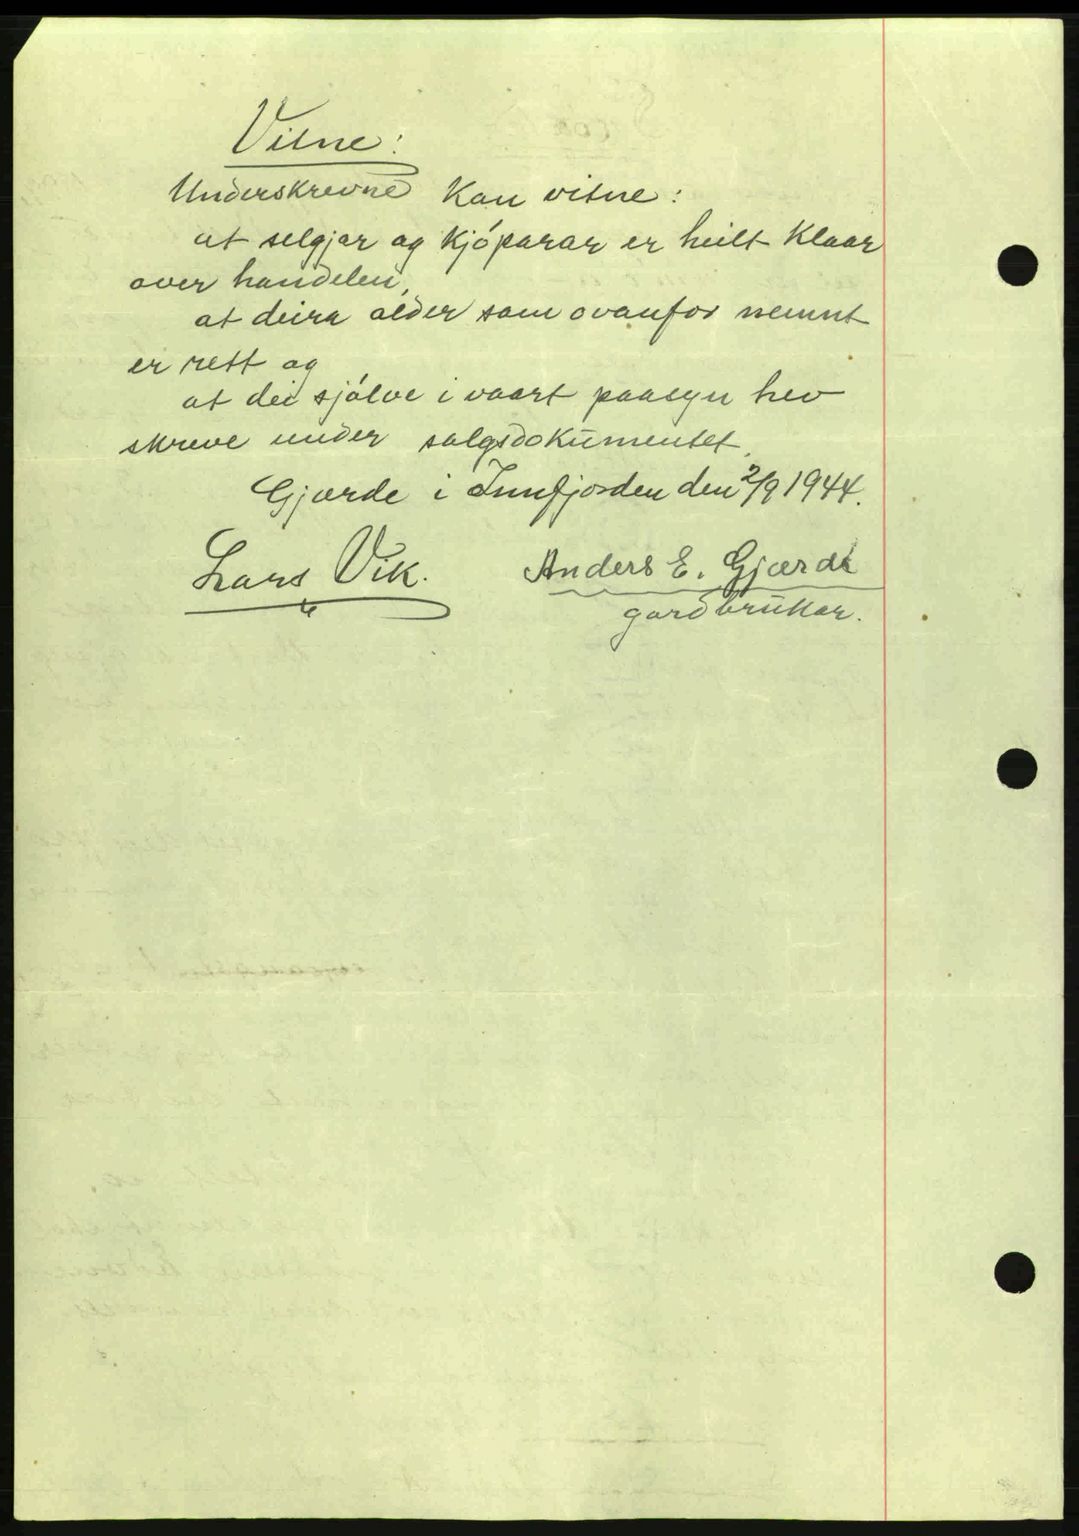 Vitne:
Underskrevne kan vitne:
at selgjar og kjóparar er heilt klaar
over handelen,
at deira alder som ovanfor nemnt
er rett og
at dei sjálve i vaart paasyn hev
skreve under salgsdokumentet.
Gjærde i Innfjorden den 2/9 1944.
Lars Vik. Anders E. Gjærde
gardbrukar.